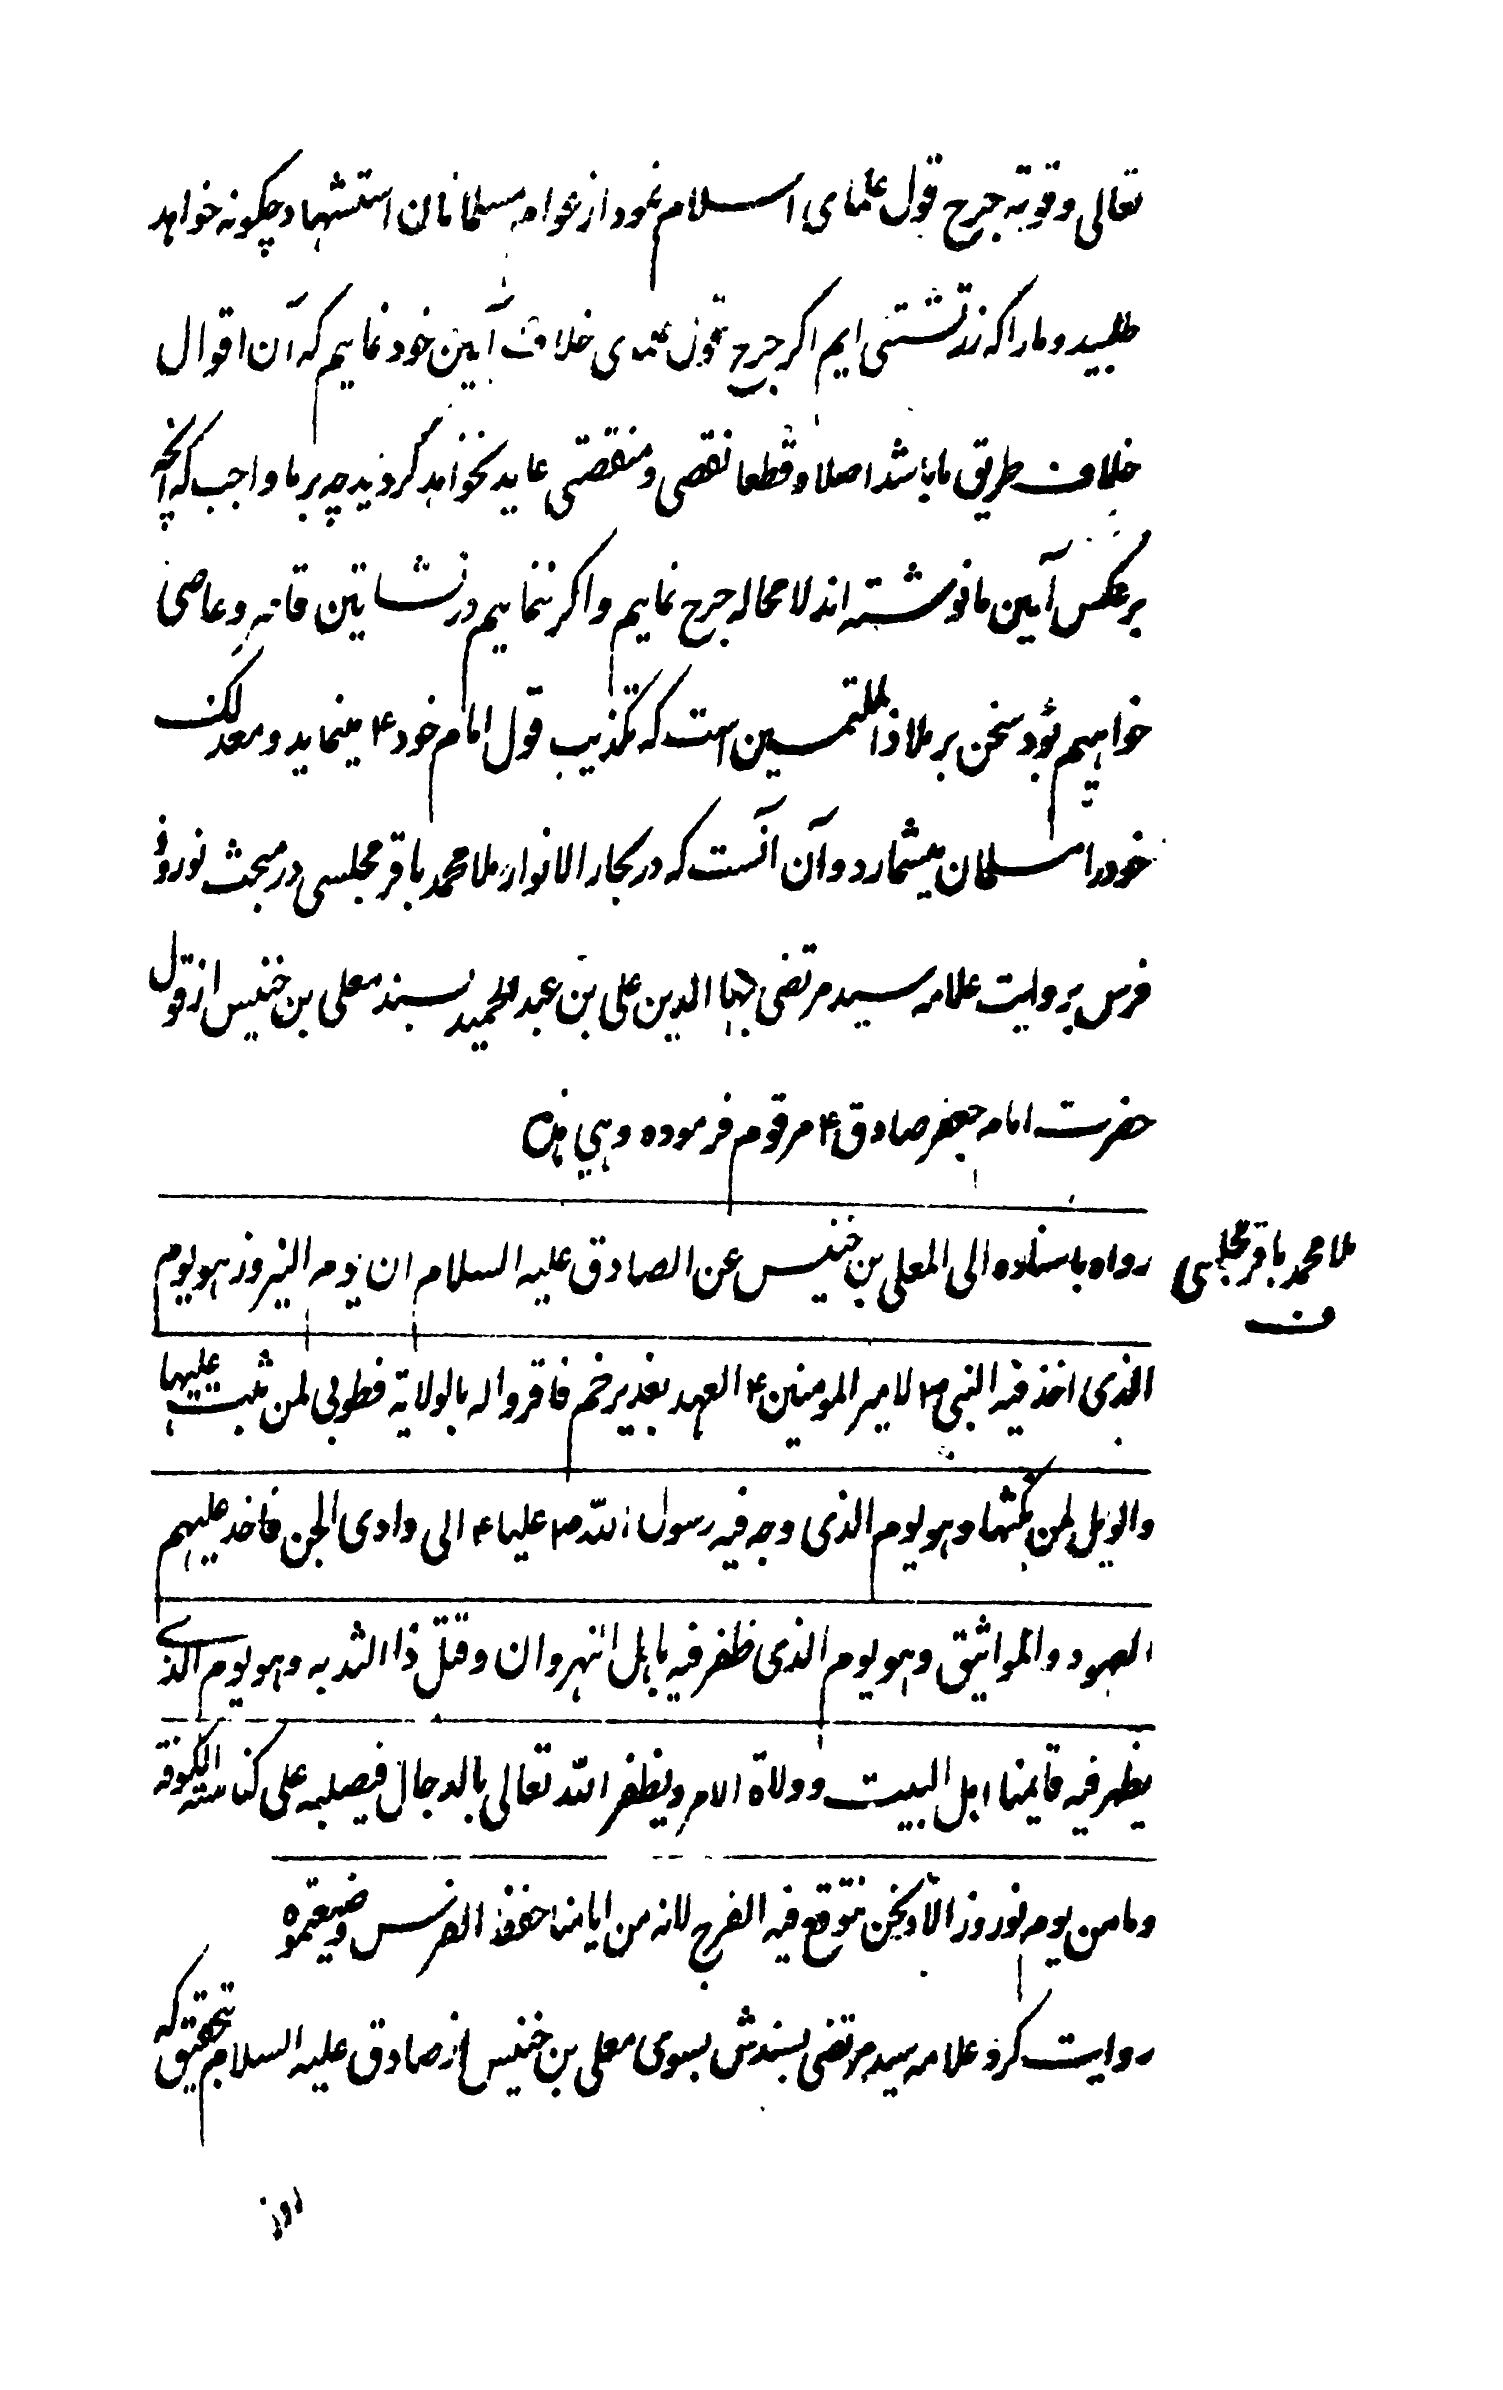 تعالی وقوته جرح قول علمای اسلام نمود از عوام مسلمانان استشهاد چکونه خواهد
طلبید و ما را که زرتشتی ایم اکر جرح قول علمای خلاف آیین خود نماییم که آن اقوال
خلاف طریق ما باشد اصلا و قطعا نقصی و منقصتی عاید نخواهد کردید چه بر ما واجب که آنچه
بر عکس آیین ما نوشته اند لا محاله جرح نماییم و اکر ننماییم در نشاتین و عاصی
خواهیم بود سخن بر ملاذ الملتمسین است که تکذیب قول امام خود ۴ مینماید و معذلک
خود را مسلمان میشمارد و آن آنست که در بحار الانوار ملا محمد باقر مجلسی در مبحث نوروز
فرس بروایت علامه سید مرتضی بهاالدین علی بن عبد الحمید بسند معلی بن خنیس از قول
حضرت امام جعفر صادق ۴ مرقوم فرموده و هی هذه
رواه باسناده الی المعلی بن خنیس عن الصادق علیه السلام ان یوم النیروز هو یوم
ملا محمد باقر مجلسی
ف
الذی اخذ فیه النبی ص لامیر المومنین ۴ العهد بغدیر خم فاقروا له بالولایة فطوبی لمن ثبت علیها
والویل لمن نکثها و هو یوم الذی وجه فیه رسول الله ص علیا ۴ الی وادی الجن فاخذ علیهم
العهود والمواثیق و هو یوم الذی ظفر فیه باهل النهروان و قتل ذا الثدیه و هو یوم الذی
یظهر فیه قایمنا اهل البیت و ولاة الامر و یظفر الله تعالی بالدجال فیصلبه علی کناسته الکوفة
و ما من یوم نوروز الا و نحن نتوقع فیه الفرج لانه من ایامنا حفظ الفرس و ضیعتموه
روایت کرد علامه سید مرتضی بسندش بسوی معلی بن خنیس از صادق علیه السلام بتحقیق که
روز